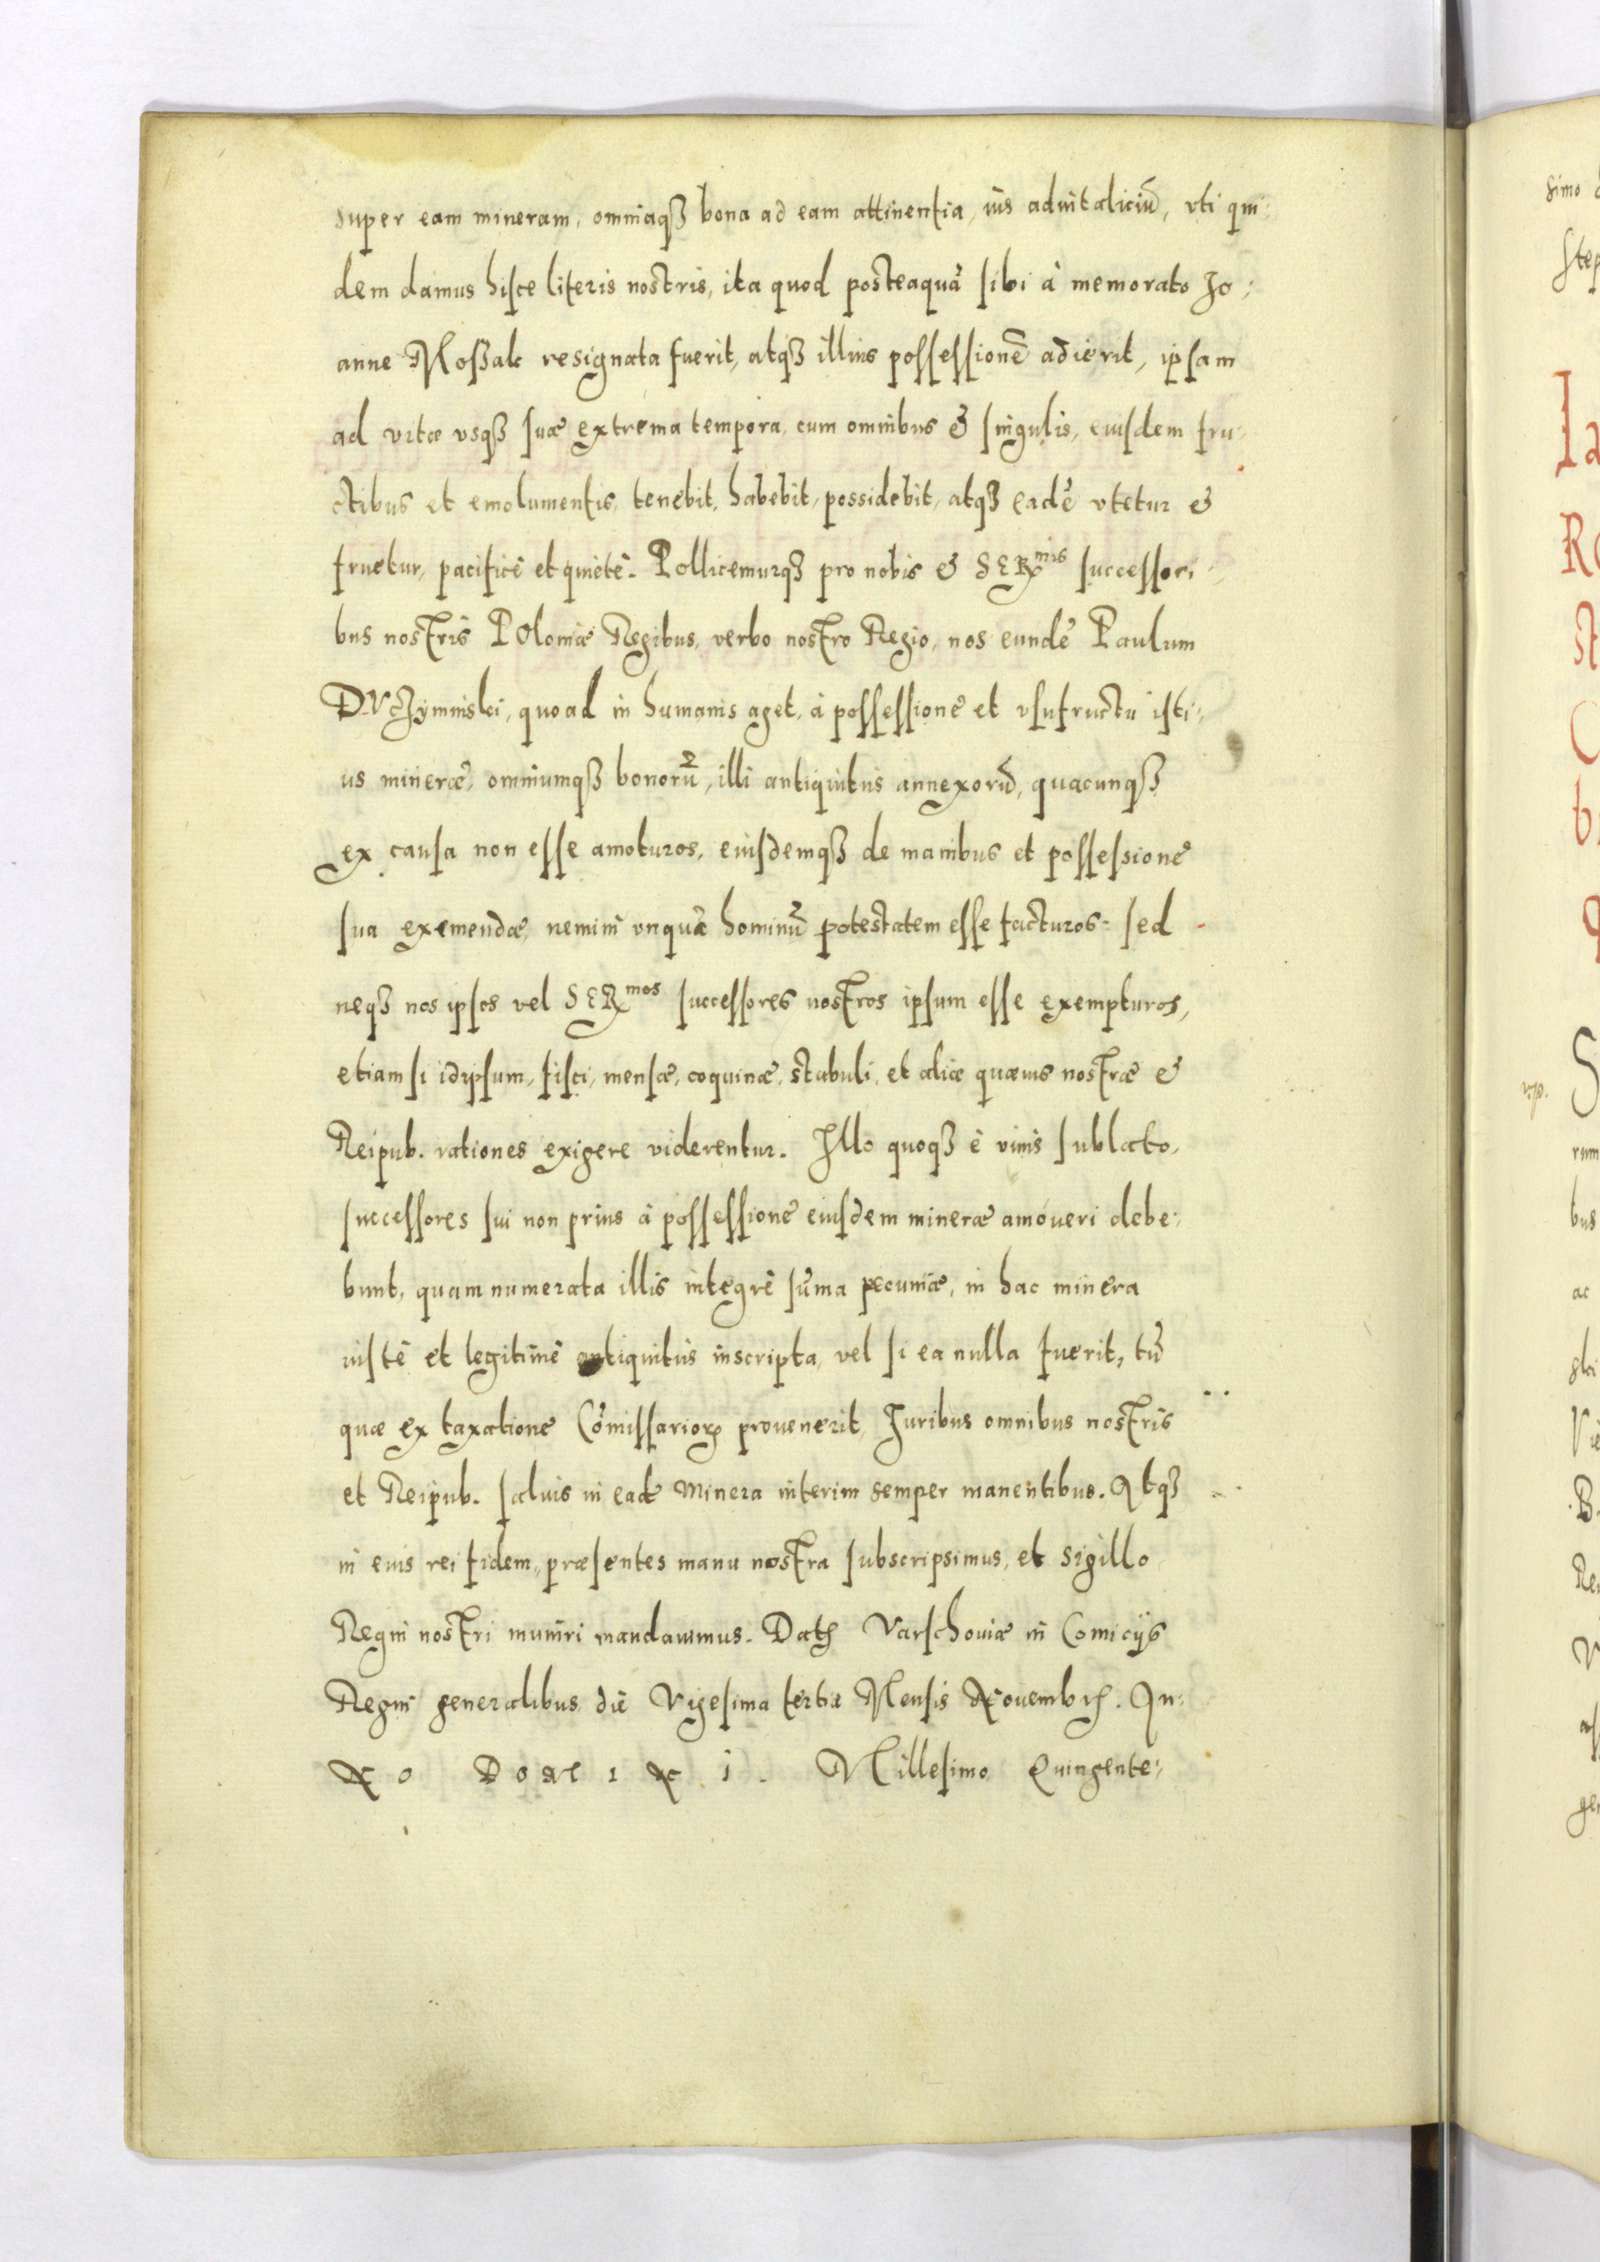 super eam mineram, omniaqꝫ bona ad eam attinentia, ius aduitaliciū, vti qui:
dem damus hisce literis nostris, ita quod posteaquā sibi à memorato Jo:
anne Roszak resignata fuerit, atqꝫ illius possessionē adierit, ipsam
ad vitæ vsqꝫ suæ extrema tempora, cum omnibus & singulis, eiusdem fru:
ctibus et emolumentis, tenebit, habebit, possidebit, atqꝫ eadē vtetur &
fruetur, pacificè et quietè. Pollicemurqꝫ pro nobis & SERmis successori
bus nostris POloniæ Regibus, verbo nostro Regio, nos eundē Paulum
DVczyminski, quoad in humanis aget, à possessione et vsufructu isti:
us mineræ, omniumqꝫ bonorū, illi antiquitus annexorū, quacunqꝫ
ex causa non esse amoturos, eiusdemqꝫ de manibus et possessione
sua exemendæ, nemini vnquā hominū potestatem esse facturos: sed
neqꝫ nos ipsos vel SERmos successores nostros ipsum esse exempturos,
etiam si idipsum, fisci, mensæ, coquinæ, stabuli, et aliæ quæuis nostræ &
Reipub. rationes exigere viderentur. Illo quoqꝫ è viuis sublato,
successores sui non prius à possessione eiusdem mineræ amoueri debe:
bunt, quam numerata illis integrè sūma pecuniæ, in hac minera
iustè et legitimè antiquitùs inscripta, vel si ea nulla fuerit, tū
quæ ex taxatione Cōmissarioꝝ prouenerit, Iuribus omnibus nostris
et Reipub. saluis in eadē Minera interim semper manentibus. Atqꝫ
in eius rei fidem, præsentes manu nostra subscripsimus, et sigillo
Regni nostri muniri mandauimus. Datꝭ Varschouiæ in Comicijs
Regni generalibus, die Vigesima tertia Mensis Nouembrꝭ. An:
NO DOMINI. Millesimo Quingente: